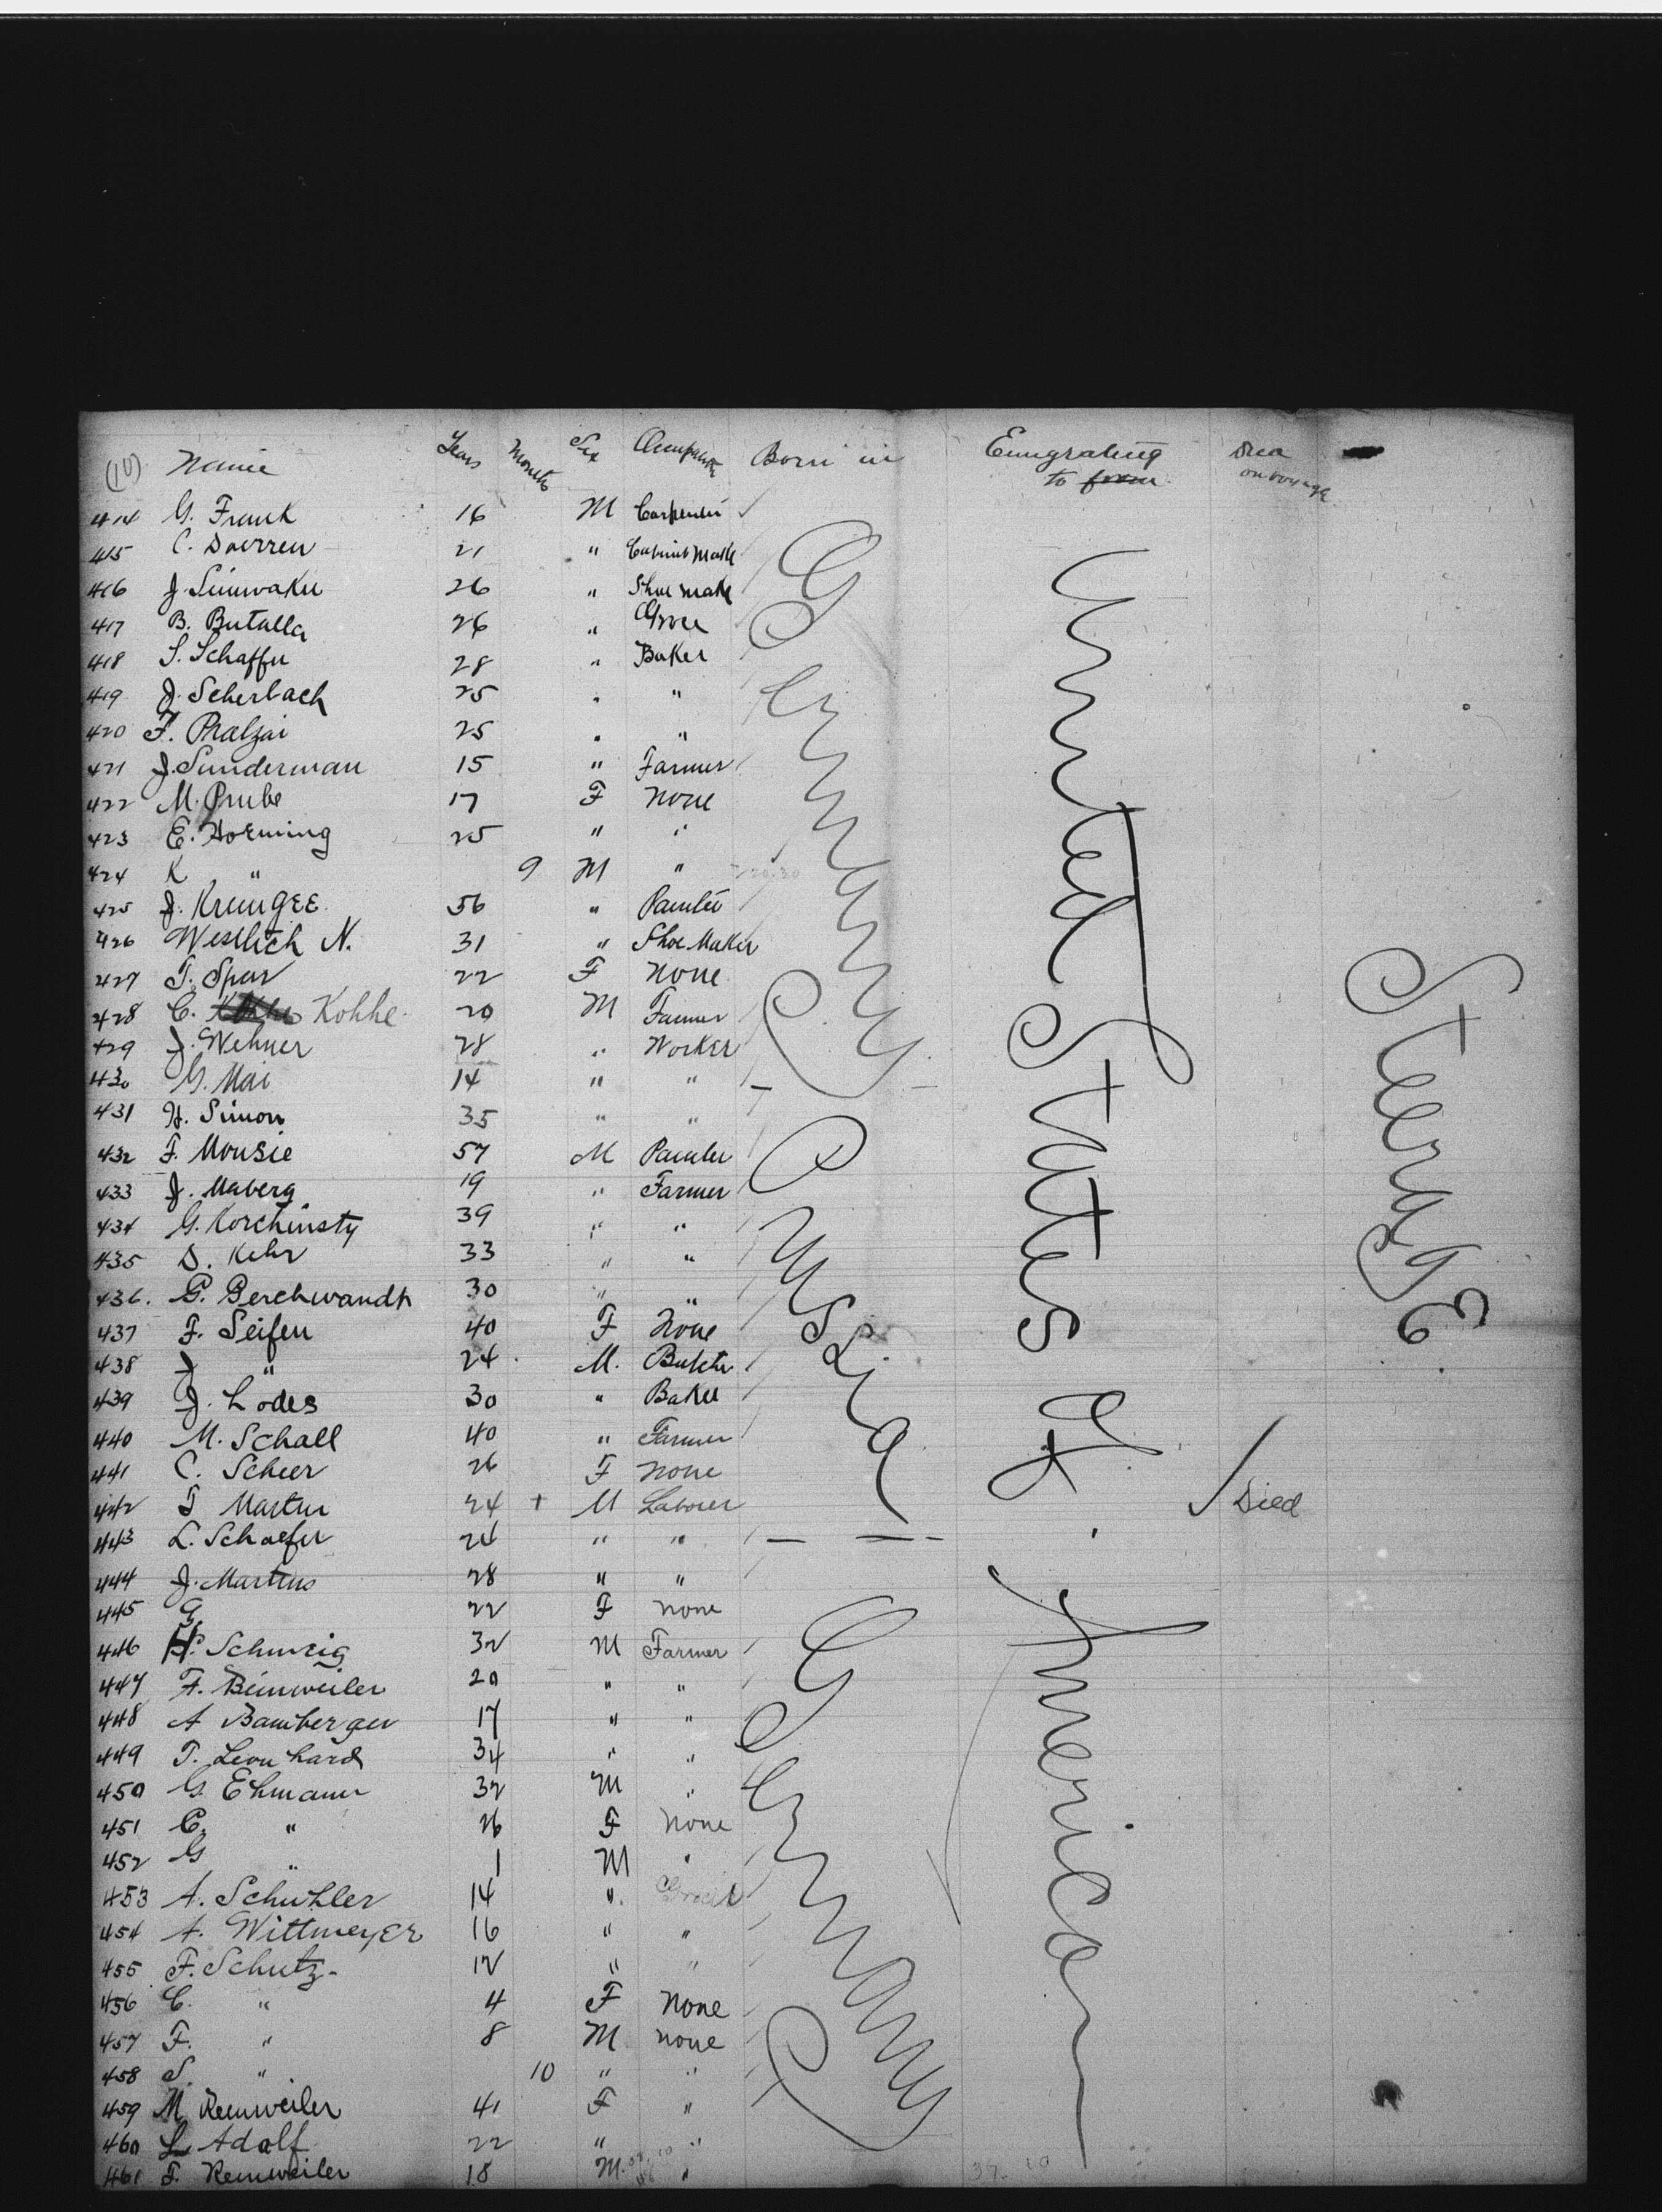 (10) Name Years Months Sex Occupation Born in Emigrating to from Died on voyage
414 G. Frank 16 M Carpenter
415 C. Doerren 21 "
416 J. 26 " Shoe make
417 B. Butalla 26 "
418 S. Schaffer 28 " Baker
419 J. Scherbach 25 " "
420 F. Phalzai 25 " "
421 J. Sunderman 15 " Farmer
422 M. Prube 17 F none
423 E. Horning 25 " "
424 K " 9 M "
425 J. 56 " Painter
426 Westlich N. 31 " Shoe Maker
427 T. Spur 22 F none
428 C. Kohhe 20 M Farmer
429 J. Wehner 28 " Worker
430 G. Mai 14 " "
431 H. Simon 35 " "
432 F. Mousie 57 M Painter
433 J. Maberg 19 " Farmer
434 G. Korchinsty 39 " "
435 D. Kehr 33 " "
436. G. Perchwandt 30 " "
437 F. Seifer 40 F None
438 J " 24 M. Butcher
439 J. Lodes 30 " Baker
440 M. Schall 40 " Farmer
441 C. Scheer 26 F none
442 T Martin 24 + M Laborer Died
443 L. Schaefer 24 " "
444 J. Martins 28 " "
445 G. 22 F none
446 H. Schweig 32 M Farmer
447 F. Beinweiler 20 " "
448 A Bamberger 17 " "
449 T. Leonhard 34 " "
450 G. Ehmann 32 M "
451 C. " 26 F None
452 G " 1 M "
453 A. Schuhler 14 "
454 A. Wittmeyer 16 " "
455 F. Schutz- 12 " "
456 C. " 4 F None
457 F. " 8 M none
458 S. " 10 " "
459 M Remweiler 41 F "
460 L Adolf 22 " "
461 F. Remweiler 18 M. "
Germany
Russia
Germany
United States of America
SteeragE